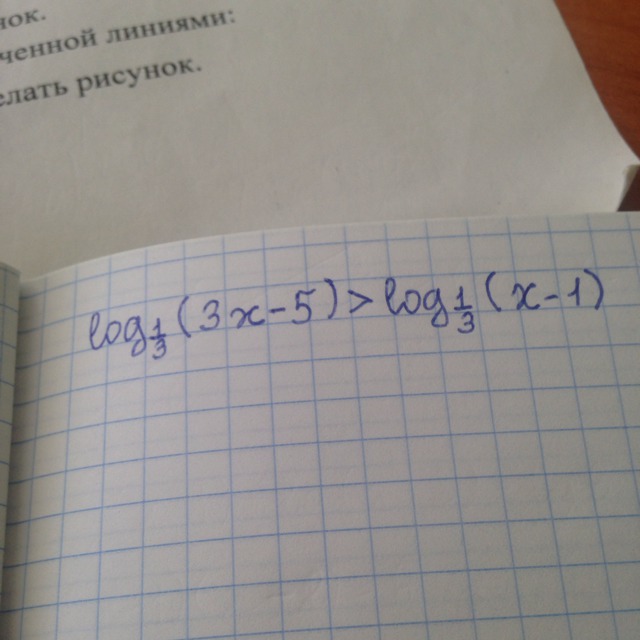 нок.
ченной линиями:
елать рисунок.
log_{1/3}(3x-5)>log_{1/3}(x-1)